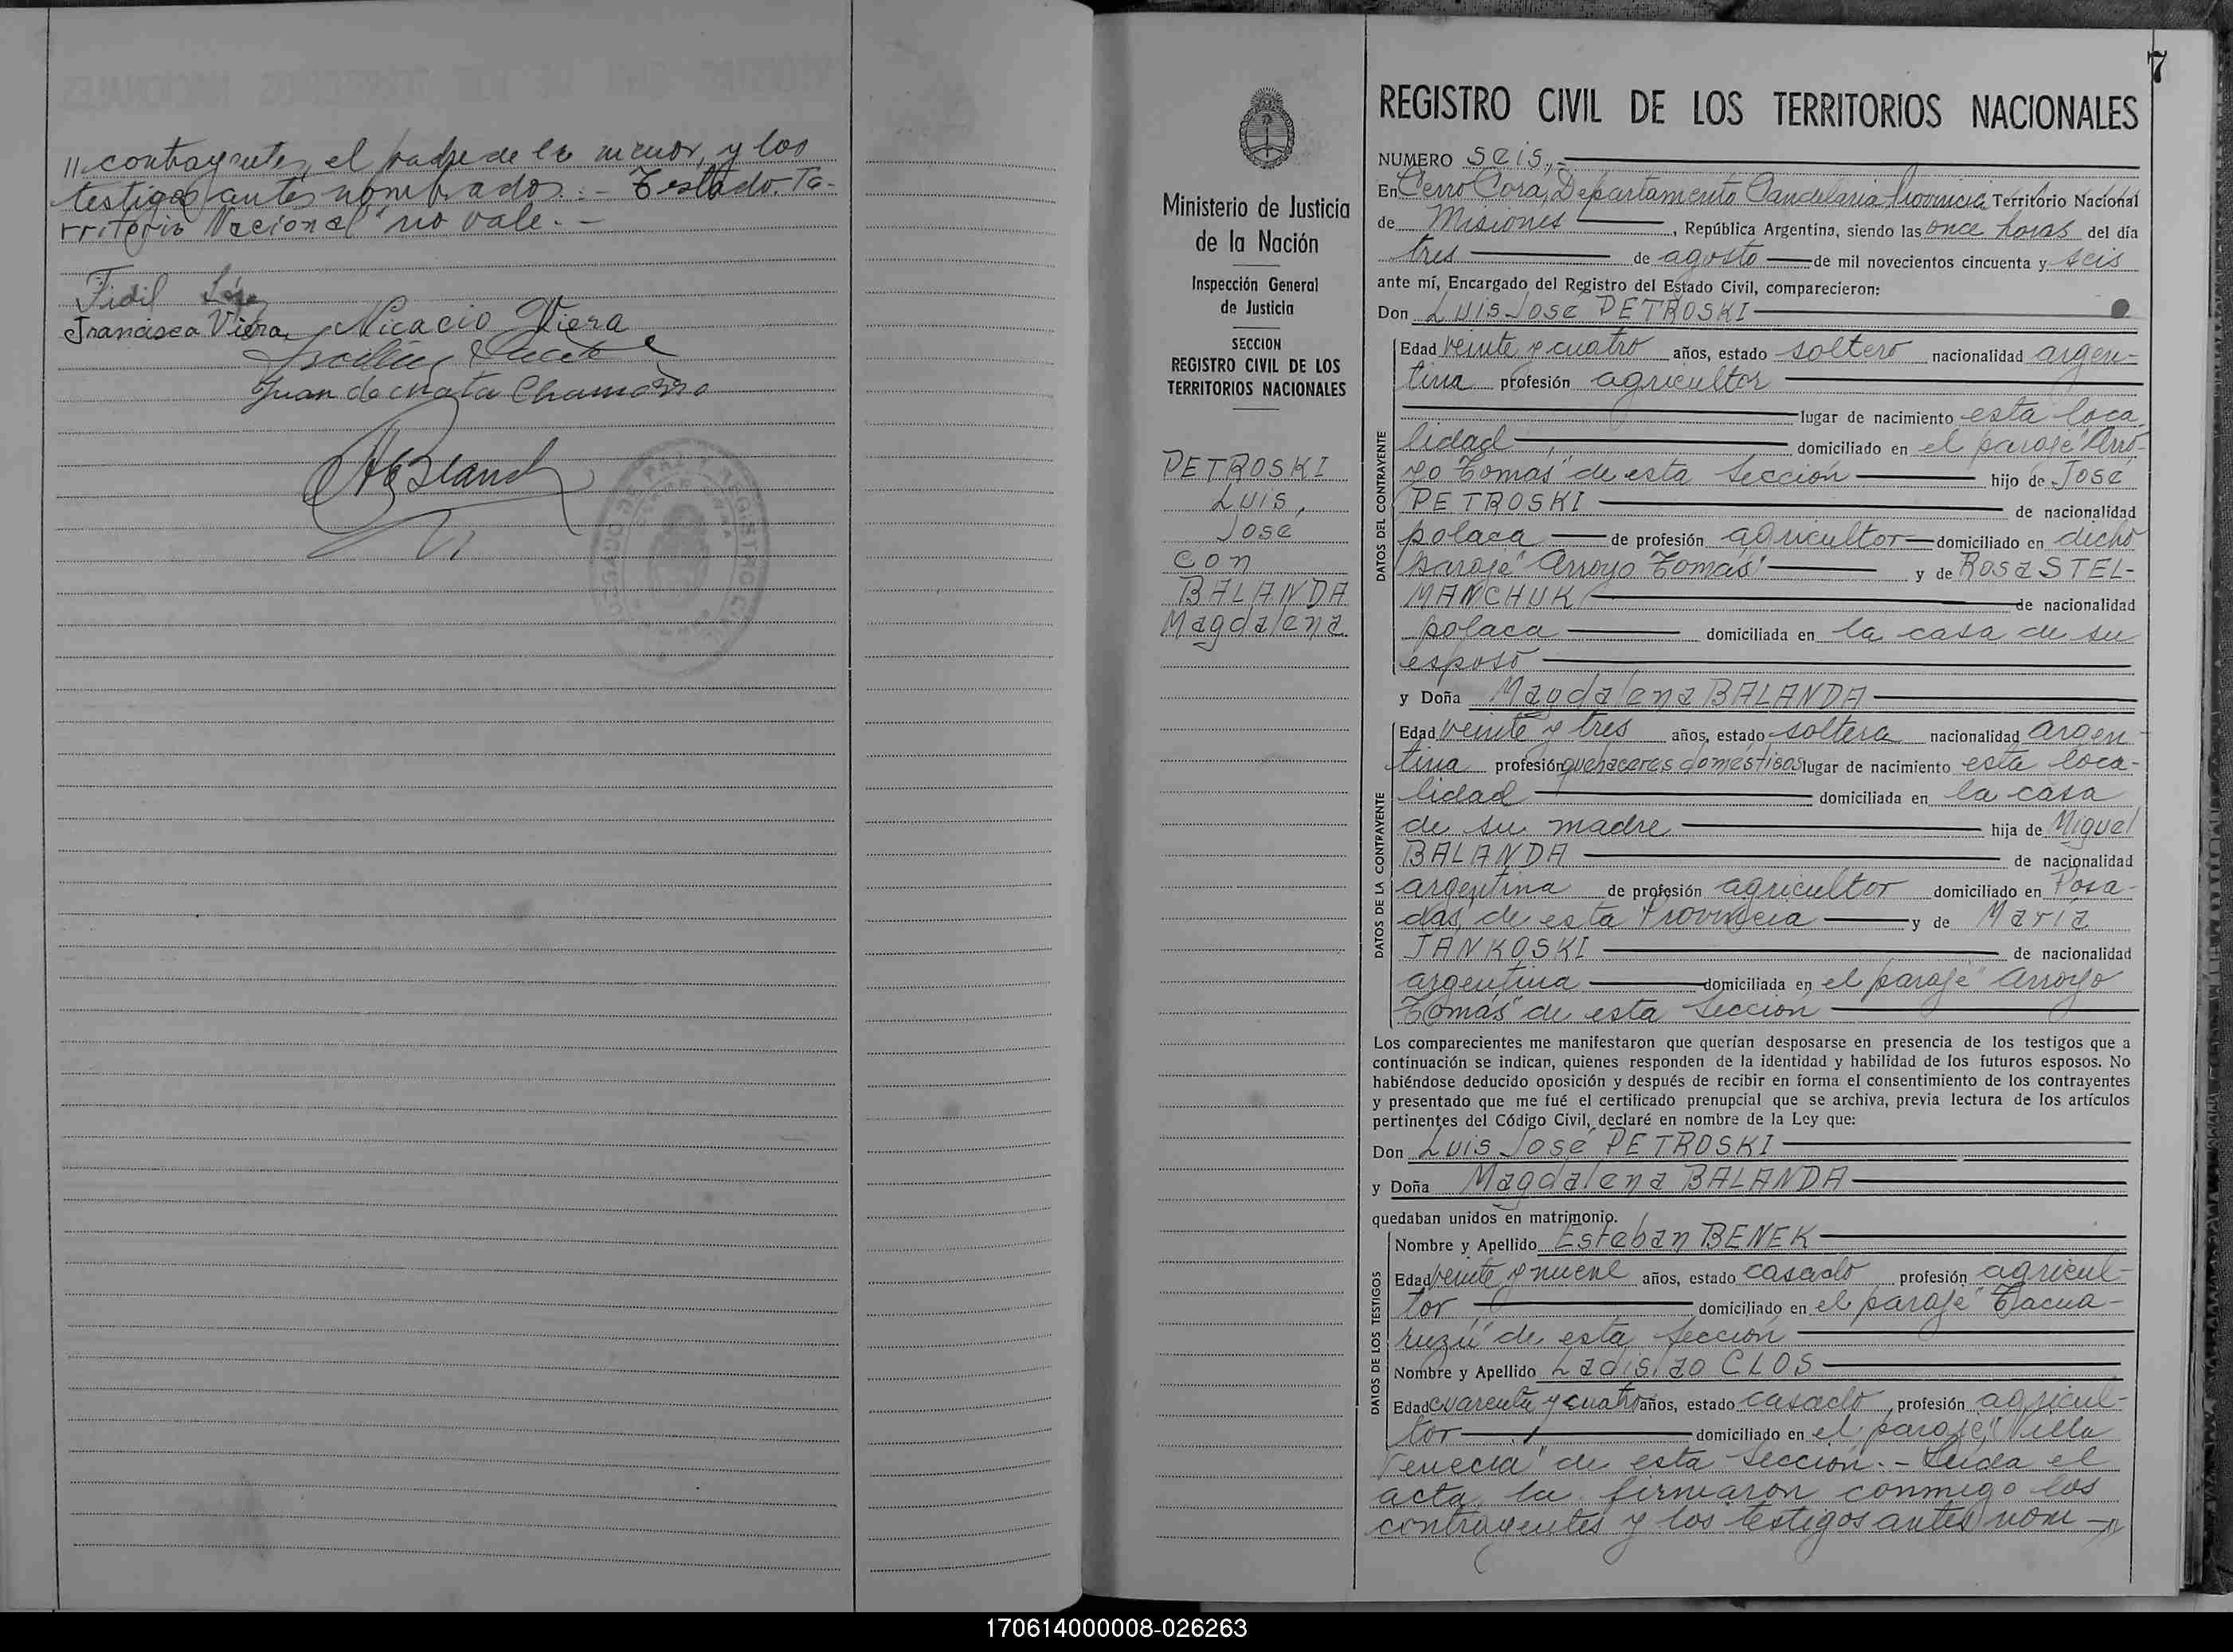 // contrayentes, el padre de la menor, y los
testigos antes nombrados.- Testado: Te-
rritorio Nacional" no vale.-
Fidil López
Francisca Viera Nicacio Viera
Juan de mata Chamorro
7
REGISTRO CIVIL DE LOS TERRITORIOS NACIONALES
Ministerio de Justicia
de la Nación
Inspección General
de Justicia
SECCION
REGISTRO CIVIL DE LOS
TERRITORIOS NACIONALES
PETROSKI
Luis,
José
con
BALANDA
Magdalena
NUMERO seis,-
En Cerro Corá, Departamento Candelaria Provincia Territorio Nacional
de Misiones, República Argentina, siendo las once horas del día
tres de agosto de mil novecientos cincuenta y seis
ante mí, Encargado del Registro del Estado Civil, comparecieron:
Don Luis José PETROSKI
DATOS DEL CONTRAYENTE
Edad veinte y cuatro años, estado soltero nacionalidad argen-
tina profesión agricultor
lugar de nacimiento esta loca
lidad, domiciliado en el paraje "Arro-
yo Tomás" de esta Sección hijo de José
PETROSKI de nacionalidad
polaca de profesión agricultor domiciliado en dicho
paraje "Arroyo Tomás" y de Rosa STEL-
MANCHUK de nacionalidad
polaca domiciliada en la casa de su
esposo
y Doña Magdalena BALANDA
DATOS DE LA CONTRAYENTE
Edad veinte y tres años, estado soltera nacionalidad argen-
tina profesión quehaceres domésticos lugar de nacimiento esta loca-
lidad domiciliada en la casa
de su madre hija de Miguel
BALANDA de nacionalidad
argentina de profesión agricultor domiciliado en Posa-
das, de esta Provincia y de María
JANKOSKI de nacionalidad
argentina domiciliada en el paraje "Arroyo
Tomás" de esta Sección
Los comparecientes me manifestaron que querían desposarse en presencia de los testigos que a
continuación se indican, quienes responden de la identidad y habilidad de los futuros esposos. No
habiéndose deducido oposición y después de recibir en forma el consentimiento de los contrayentes
y presentado que me fué el certificado prenupcial que se archiva, previa lectura de los artículos
pertinentes del Código Civil, declaré en nombre de la Ley que:
Don Luis José PETROSKI
y Doña Magdalena BALANDA
quedaban unidos en matrimonio.
DATOS DE LOS TESTIGOS
Nombre y Apellido Esteban BENEK
Edad veinte y nueve años, estado casado profesión agricul-
tor domiciliado en el paraje "Tacua-
ruzú" de esta Sección
Nombre y Apellido Ladislao CLOS
Edad cuarenta y cuatro años, estado casado profesión agricul-
tor domiciliado en el paraje "Villa
Venecia" de esta Sección.- Leida el
acta, la firmaron conmigo los
contrayentes y los testigos antes nom-//
170614000008-026263